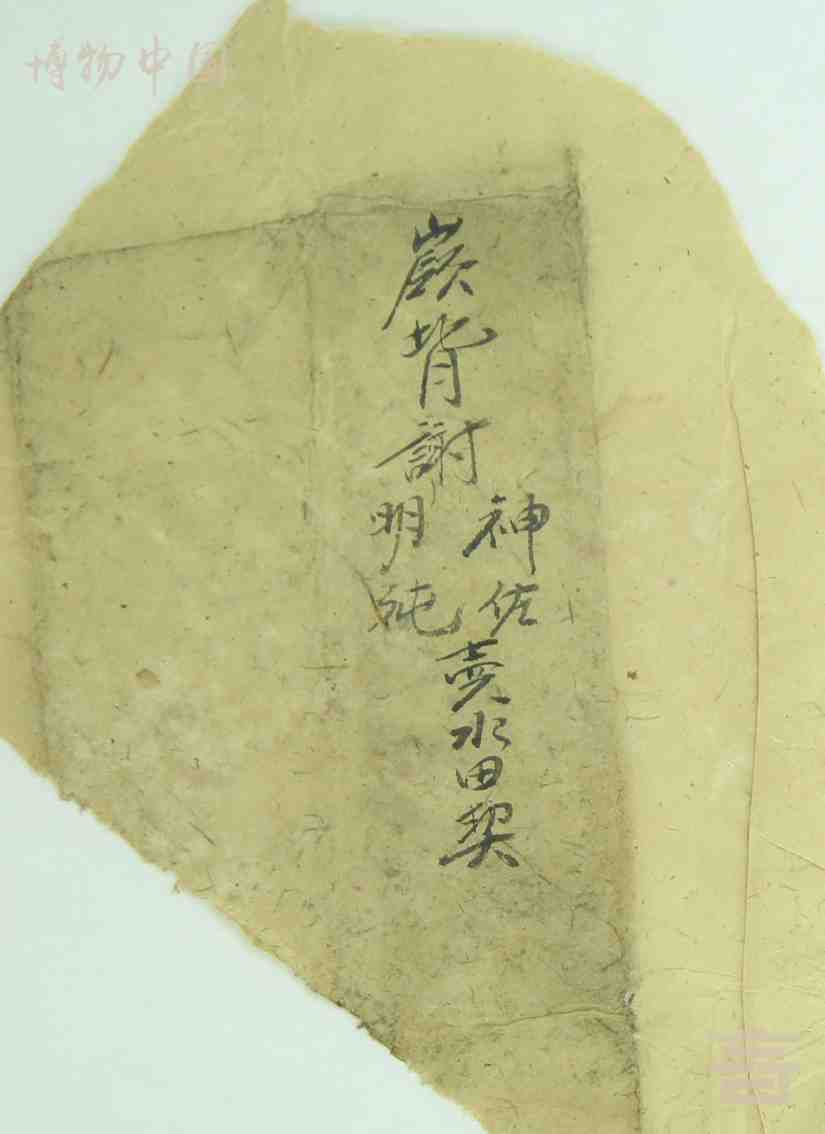 博物中国
嶺背謝
神佐
明純
賣水田契